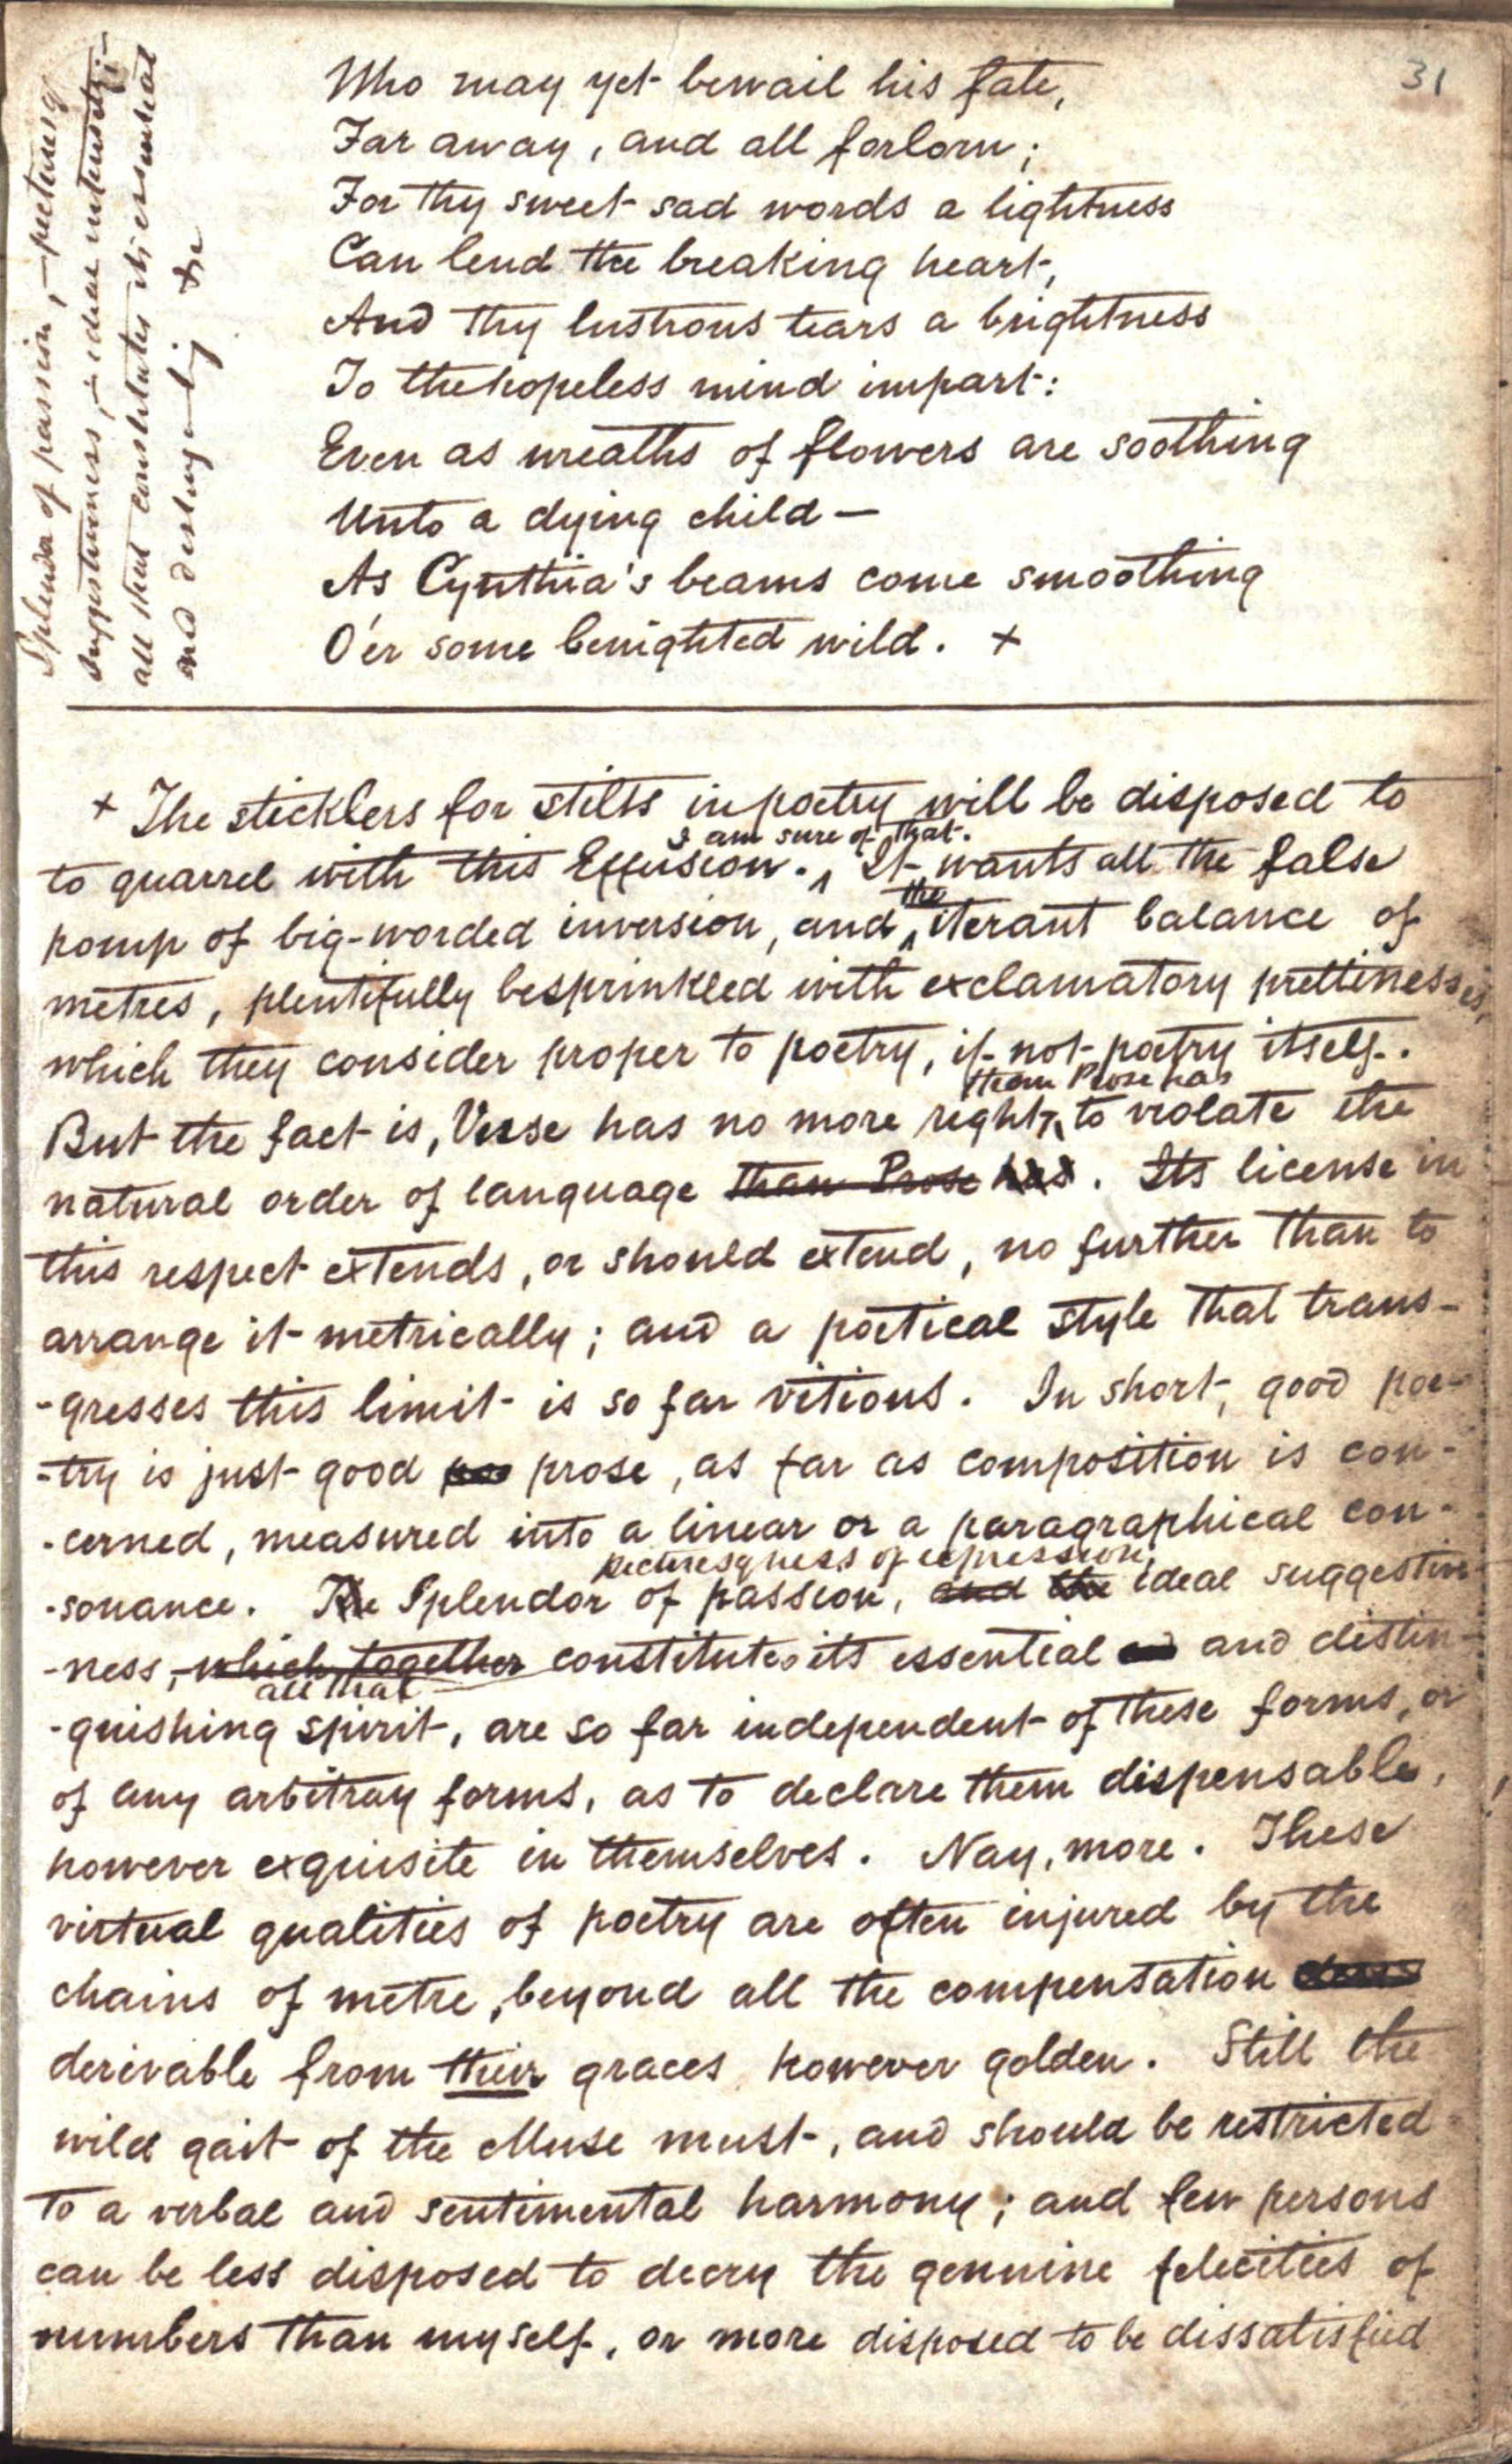 31
Who may yet bewail his fate,
Far away, and all forlorn;
For thy sweet sad words a lightness
Can lend the breaking heart,
And thy lustrous tears a brightness
To the hopeless mind impart:
Even as wreaths of flowers are soothing
Unto a dying child —
As Cynthia's beams come smoothing
O'er some benighted wild. +
Splendor of passion, – picturesq
suggestiveness, – ideal
all that constitutes its essential
and distinguishing
+ The sticklers for stilts in poetry will be disposed to
I am sure of that.
to quarrel with this Effusion. ^ It wants all the false
the
pomp of big-worded inversion, and ^ iterant balance of
metres, plentifully besprinkled with exclamatory prettinesses,
which they consider proper to poetry, if not poetry itself.
than Prose has
But the fact is, Verse has no more right, ^ to violate the
natural order of language than Prose has. Its license in
this respect extends, or should extend, no further than to
arrange it metrically; and a poetical style that trans-
-gresses this limit is so far vitious. In short, good poe-
-try is just good prose, as far as composition is con-
-cerned, measured into a linear or a paragraphical con-
picturesqness of expression,
-sonance. The Splendor of passion, and the ideal suggestive-
-ness, – which together constitutes its essential and distin-
all that
-guishing spirit, are so far independent of these forms, or
of any arbitray forms, as to declare them dispensable,
however exquisite in themselves. Nay, more. These
virtual qualities of poetry are often injured by the
chains of metre, beyond all the compensation
derivable from their graces however golden. Still the
wild gait of the Muse must, and should be restricted
to a verbal and sentimental harmony; and few persons
can be less disposed to decry the genuine felicities of
numbers than myself, or more disposed to be dissatisfied